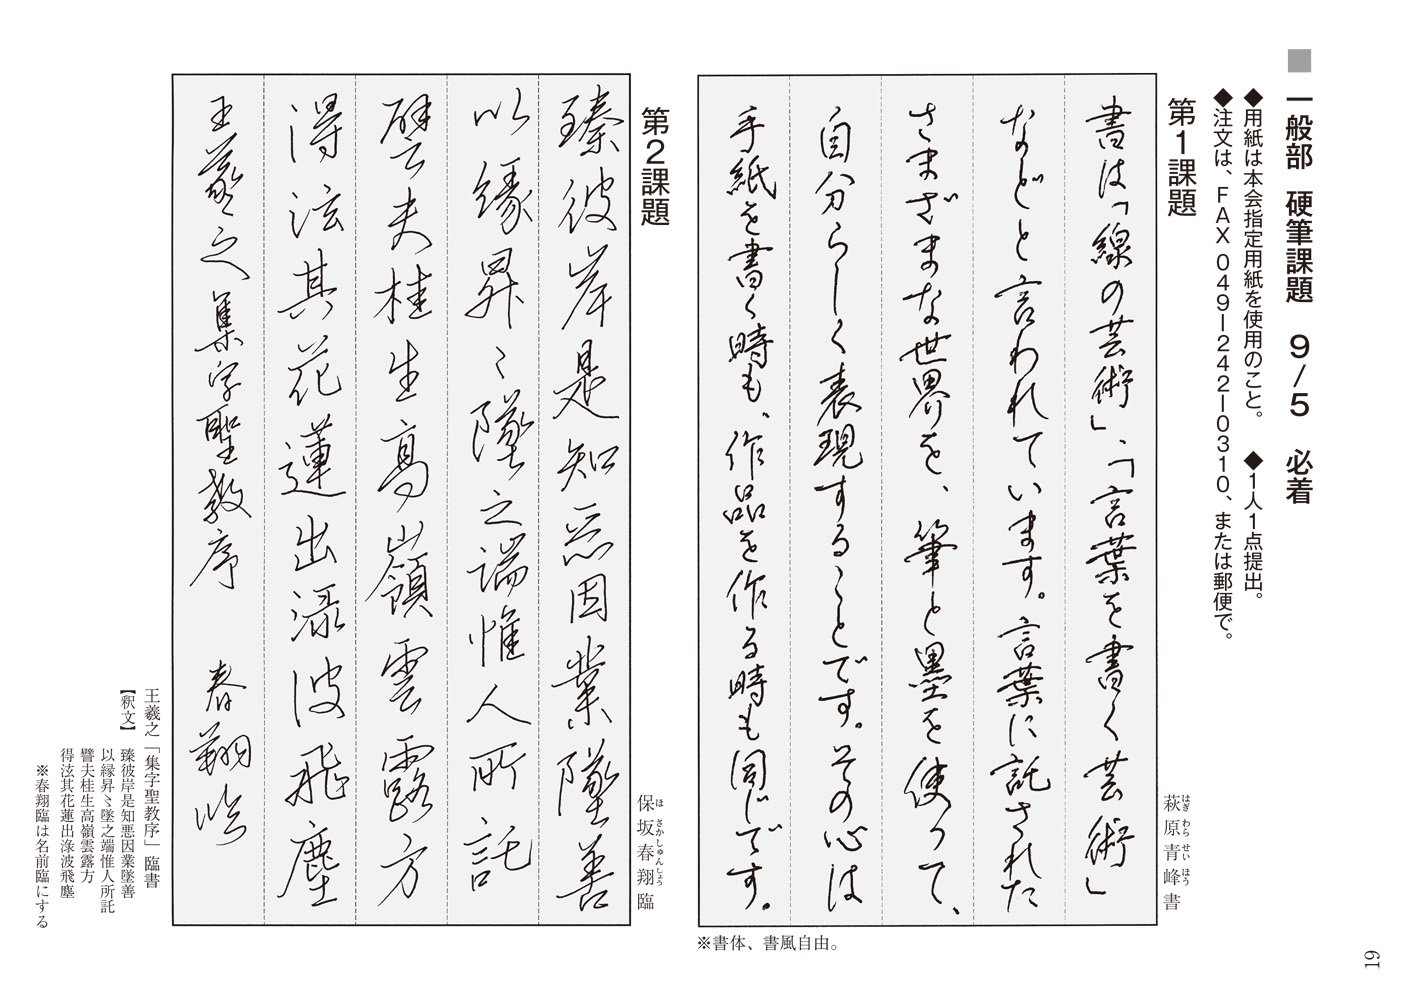 ■ 一般部 硬筆課題 9/5 必着
◆用紙は本会指定用紙を使用のこと。 ◆1人1点提出。
◆注文は、FAX 049-242-0310、または郵便で。
第1課題
萩原青峰書
はぎわらせいほう
書は「線の芸術」、「言葉を書く芸術」
などと言われています。言葉に託された
さまざまな世界を、筆と墨を使って、
自分らしく表現することです。その心は
手紙を書く時も、作品を作る時も同じです。
※書体、書風自由。
第2課題
保坂春翔臨
ほさかしゅんしょう
臻彼岸是知悪因業墜善
以縁昇〻墜之端惟人所託
譬夫桂生高嶺雲露方
得泫其花蓮出淥波飛塵
王羲之集字聖教序 春翔臨
王羲之「集字聖教序」臨書
【釈文】 臻彼岸是知悪因業墜善
以縁昇〻墜之端惟人所託
譬夫桂生高嶺雲露方
得泫其花蓮出淥波飛塵
※春翔臨は名前臨にする
19